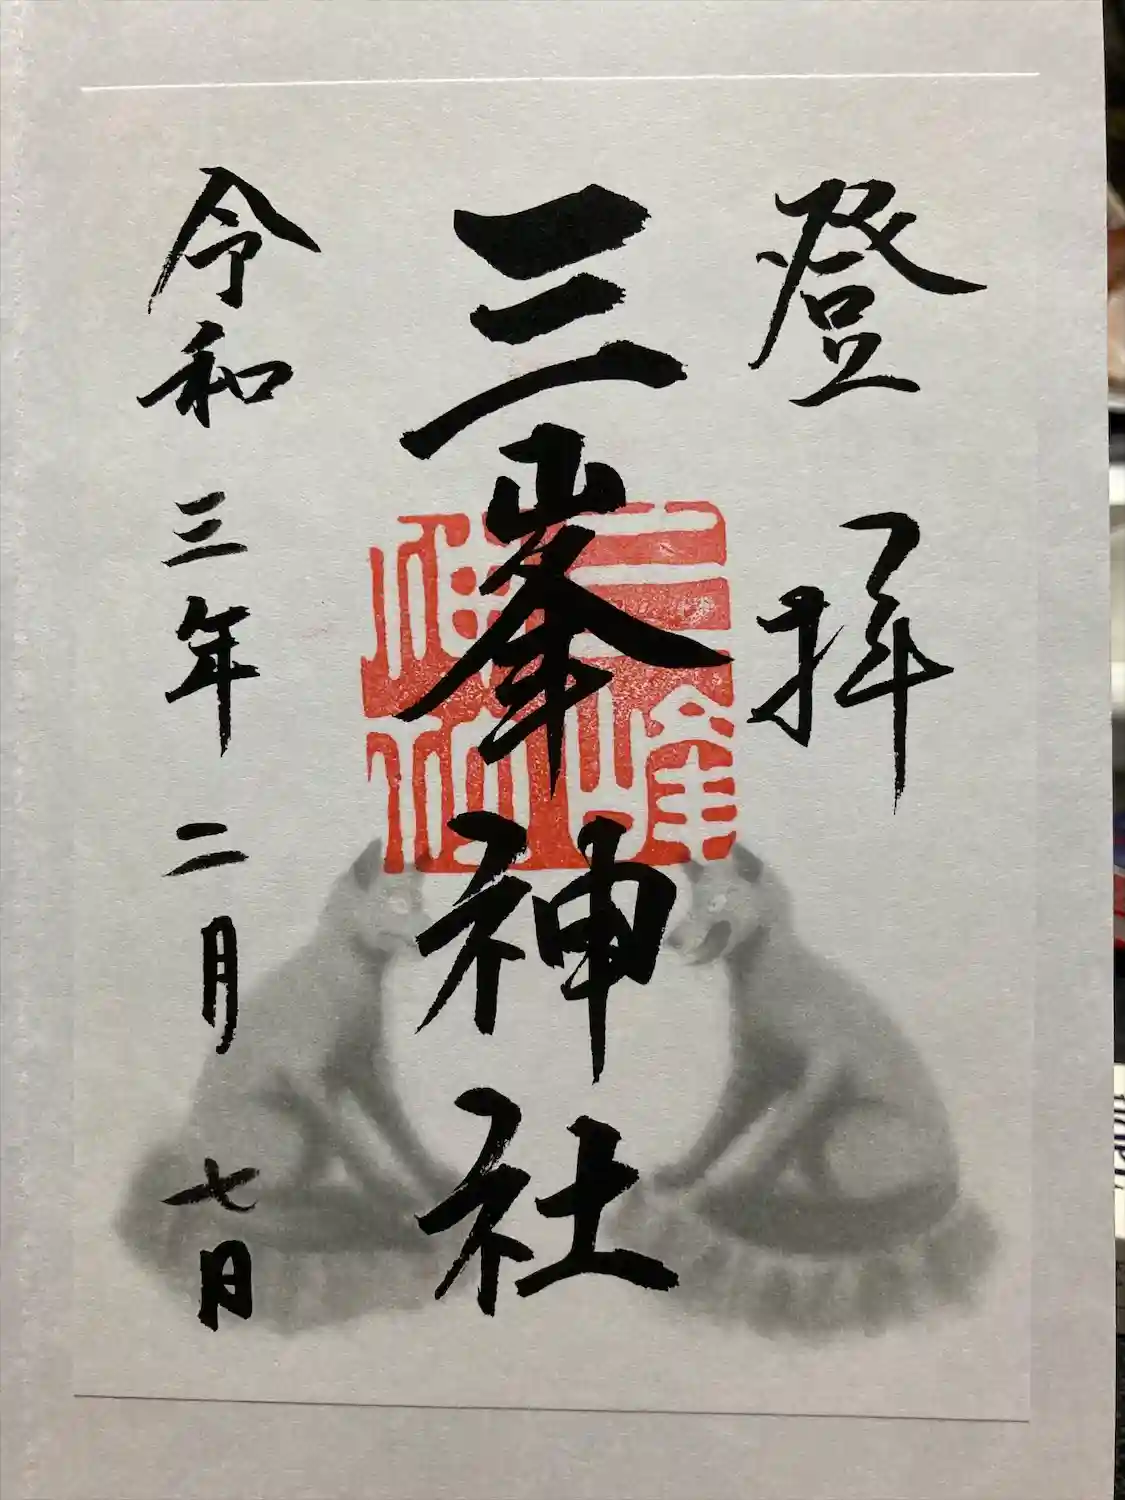 登拝
三峯神社
三峰神社
令和三年二月七日